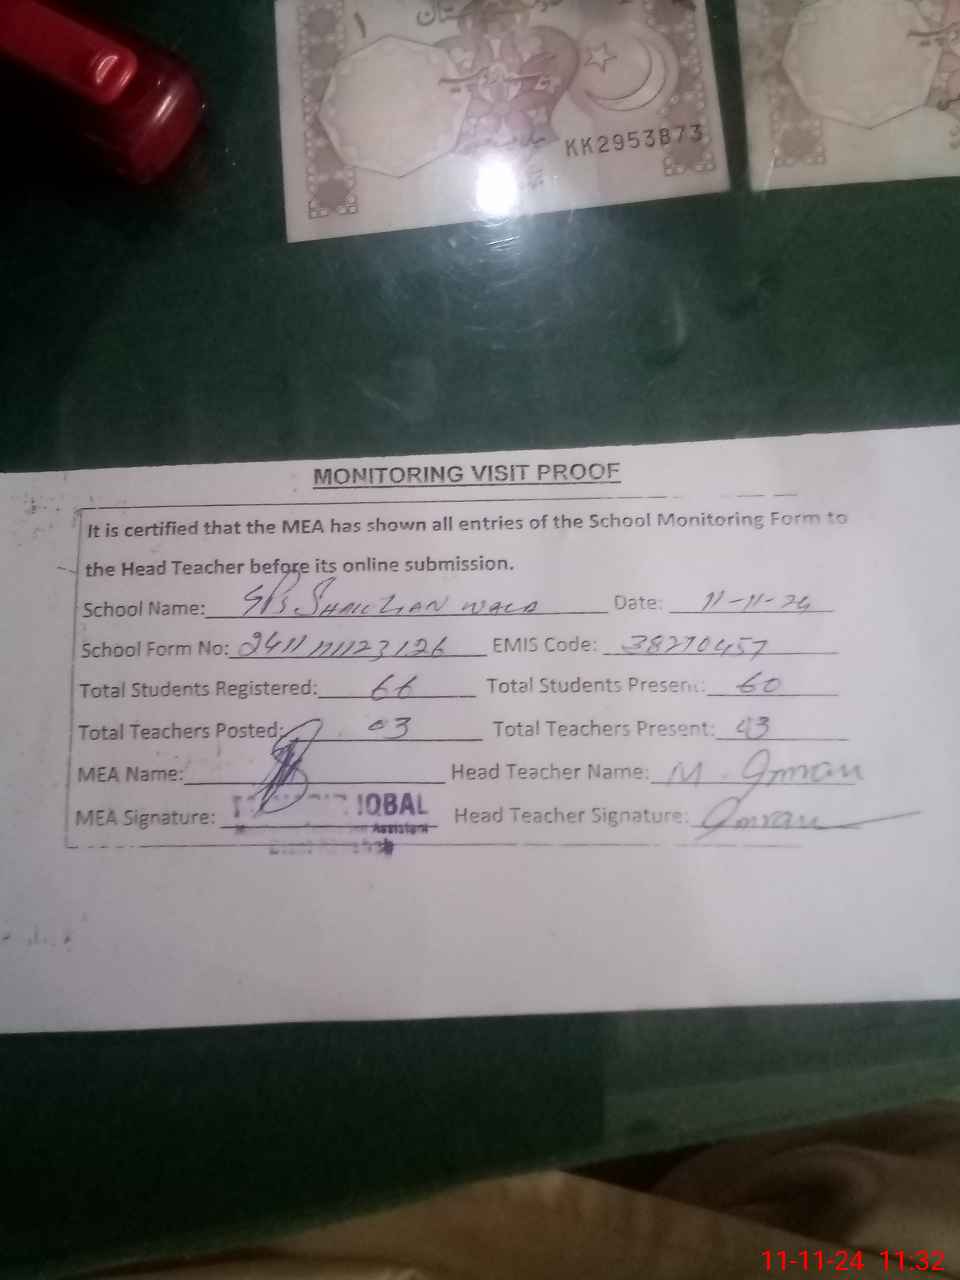 ۱
KK2953873
MONITORING VISIT PROOF
It is certified that the MEA has shown all entries of the School Monitoring Form to
the Head Teacher before its online submission.
School Name: GPS SHAIKHAN WALA Date: 11-11-24
School Form No: EMIS Code: 38270457
Total Students Registered: 66 Total Students Present: 60
Total Teachers Posted: 03 Total Teachers Present: 03
MEA Name: Head Teacher Name: M. Imran
MEA Signature: IQBAL Head Teacher Signature: Imran
Assistant
11-11-24 11:32